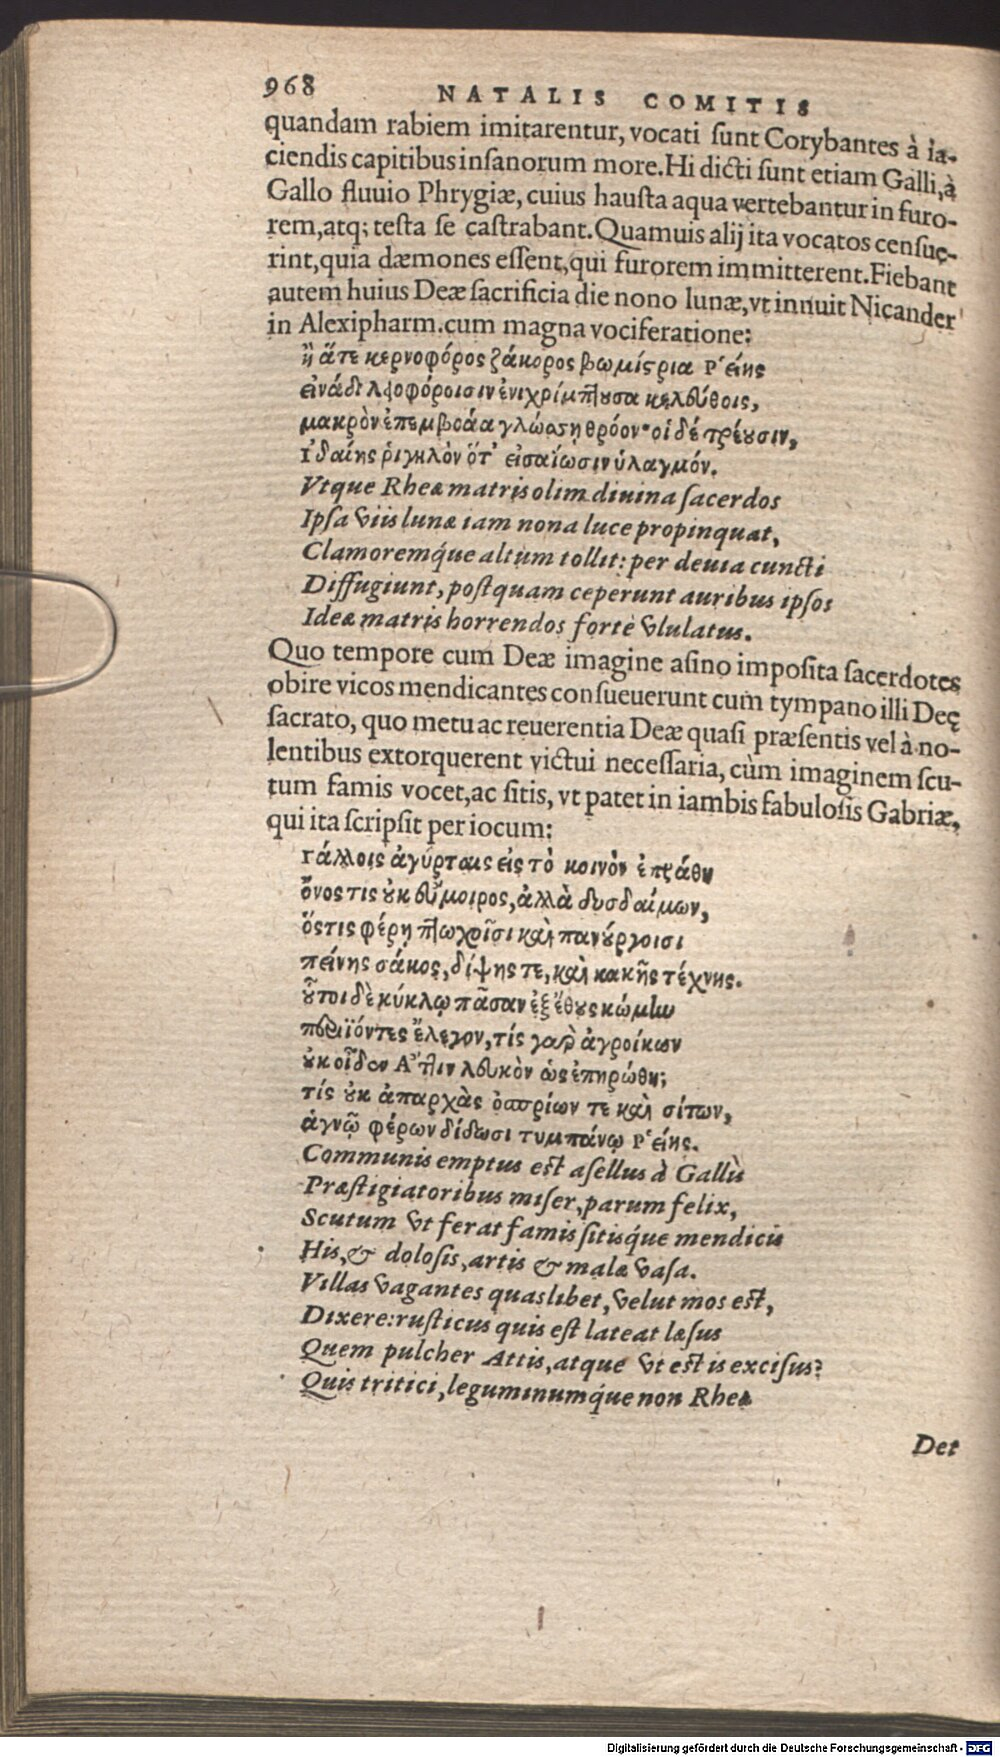 968 NATALIS COMITIS
quandam rabiem imitarentur, vocati ſunt Corybantes à ia-
ciendis capitibus inſanorum more. Hi dicti ſunt etiam Galli, à
Gallo fluuio Phrygiæ, cuius hauſta aqua vertebantur in furo-
rem, atq; teſta ſe caſtrabant. Quamuis alij ita vocatos cenſue-
rint, quia dæmones eſſent, qui furorem immitterent. Fiebant
autem huius Deæ ſacrificia die nono lunæ, vt innuit Nicander
in Alexipharm. cum magna vociferatione:
ἢ ἅτε κερνοφόρος ζάκορος βωμίστρια Ῥείης
εἰνάδι λαοφόροισιν ἐνιχρίμπτουσα κελεύθοις,
μακρὸν ἐπεμβοάᾳ γλώσσῃ θρόον· οἱ δὲ τρέουσιν,
Ἰδαίης ῥιγηλὸν ὅτ' εἰσαΐωσιν ὑλαγμόν.
Vtque Rheæ matris olim diuina ſacerdos
Ipſa viis lunæ iam nona luce propinquat,
Clamorémque altum tollit: per deuia cuncti
Diffugiunt, poſtquam ceperunt auribus ipſos
Ideæ matris horrendos fortè vlulatus.
Quo tempore cum Deæ imagine aſino impoſita ſacerdotes
obire vicos mendicantes conſueuerunt cum tympano illi Deę
ſacrato, quo metu ac reuerentia Deæ quaſi præſentis vel à no-
lentibus extorquerent victui neceſſaria, cùm imaginem ſcu-
tum famis vocet, ac ſitis, vt patet in iambis fabuloſis Gabriæ,
qui ita ſcripſit per iocum:
Γάλλοις ἀγύρταις εἰς τὸ κοινὸν ἐπράθη
ὄνος τις οὐκ εὔμοιρος, ἀλλὰ δυσδαίμων,
ὅστις φέρῃ πτωχοῖσι καὶ πανούργοισι
πείνης σάκος, δίψης τε, καὶ κακῆς τέχνης.
οὗτοι δὲ κύκλῳ πᾶσαν ἐξ ἔθους κώμην
περιϊόντες ἔλεγον, τίς γὰρ ἀγροίκων
οὐκ οἶδεν Ἄττιν λευκὸν ὡς ἐπηρώθη;
τίς οὐκ ἀπαρχὰς ὀσπρίων τε καὶ σίτων,
ἁγνῷ φέρων δίδωσι τυμπάνῳ Ῥείης.
Communis emptus eſt aſellus à Gallis
Præſtigiatoribus miſer, parum felix,
Scutum vt ferat famis ſitisq́ue mendicis
His, & doloſis, artis & malæ vaſa.
Villas vagantes quaslibet, velut mos eſt,
Dixere: ruſticus quis eſt lateat læſus
Quem pulcher Attis, atque vt eſt is exciſus?
Quis tritici, leguminumq́ue non Rheæ
Det
Digitalisierung gefördert durch die Deutsche Forschungsgemeinschaft - DFG